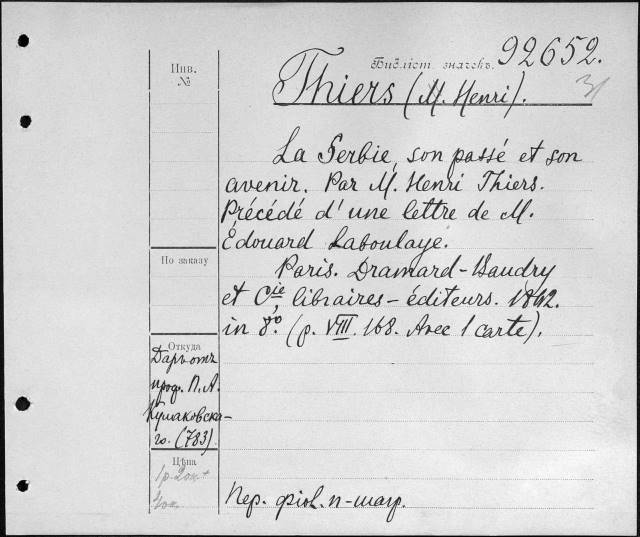 Инв.
№
Библіот. значекъ.
92652.
31
Thiers (M. Henri).
La Serbie, son passé et son
avenir. Par M. Henri Thiers.
Précédé d'une lettre de M.
Édouard Laboulaye.
Paris. Dramard-Baudry
et Cie, libraires-éditeurs. 1862.
in 8º. (p. VIII. 168. Avec 1 carte).
По заказу
Откуда
Даръ отъ
проф. П. А.
Кулаковска-
го. (783).
Цѣна
1 р. 20 к.
Пер. фіол. п-шагр.